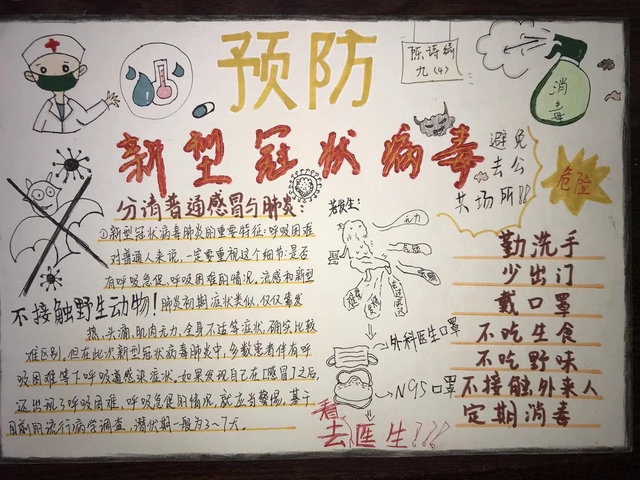 预防
陈诗
九(4)
消毒
新型冠状病毒
避免
去公
共场所!!
危险
分清普通感冒与肺炎:
①新型冠状病毒肺炎的重要特征:呼吸困难
对普通人来说,一定要重视这个细节:是否
有呼吸急促、呼吸困难的情况,流感和新型
不接触野生动物!
肺炎初期症状类似,仅仅靠发
热、头痛、肌肉无力、全身不适等症状,确实比较
难区别,但在此次新型冠状病毒肺炎中,多数患者伴有呼
吸困难等下呼吸道感染症状。如果发现自己在感冒了之后,
还出现了呼吸困难、呼吸急促的情况,就应当警惕,基于
目前的流行病学调查,潜伏期一般为3~7天。
若发生:
乏力
外科医生口罩
N95口罩
看
去医生!!!
勤洗手
少出门
戴口罩
不吃生食
不吃野味
不接触外来人
定期消毒